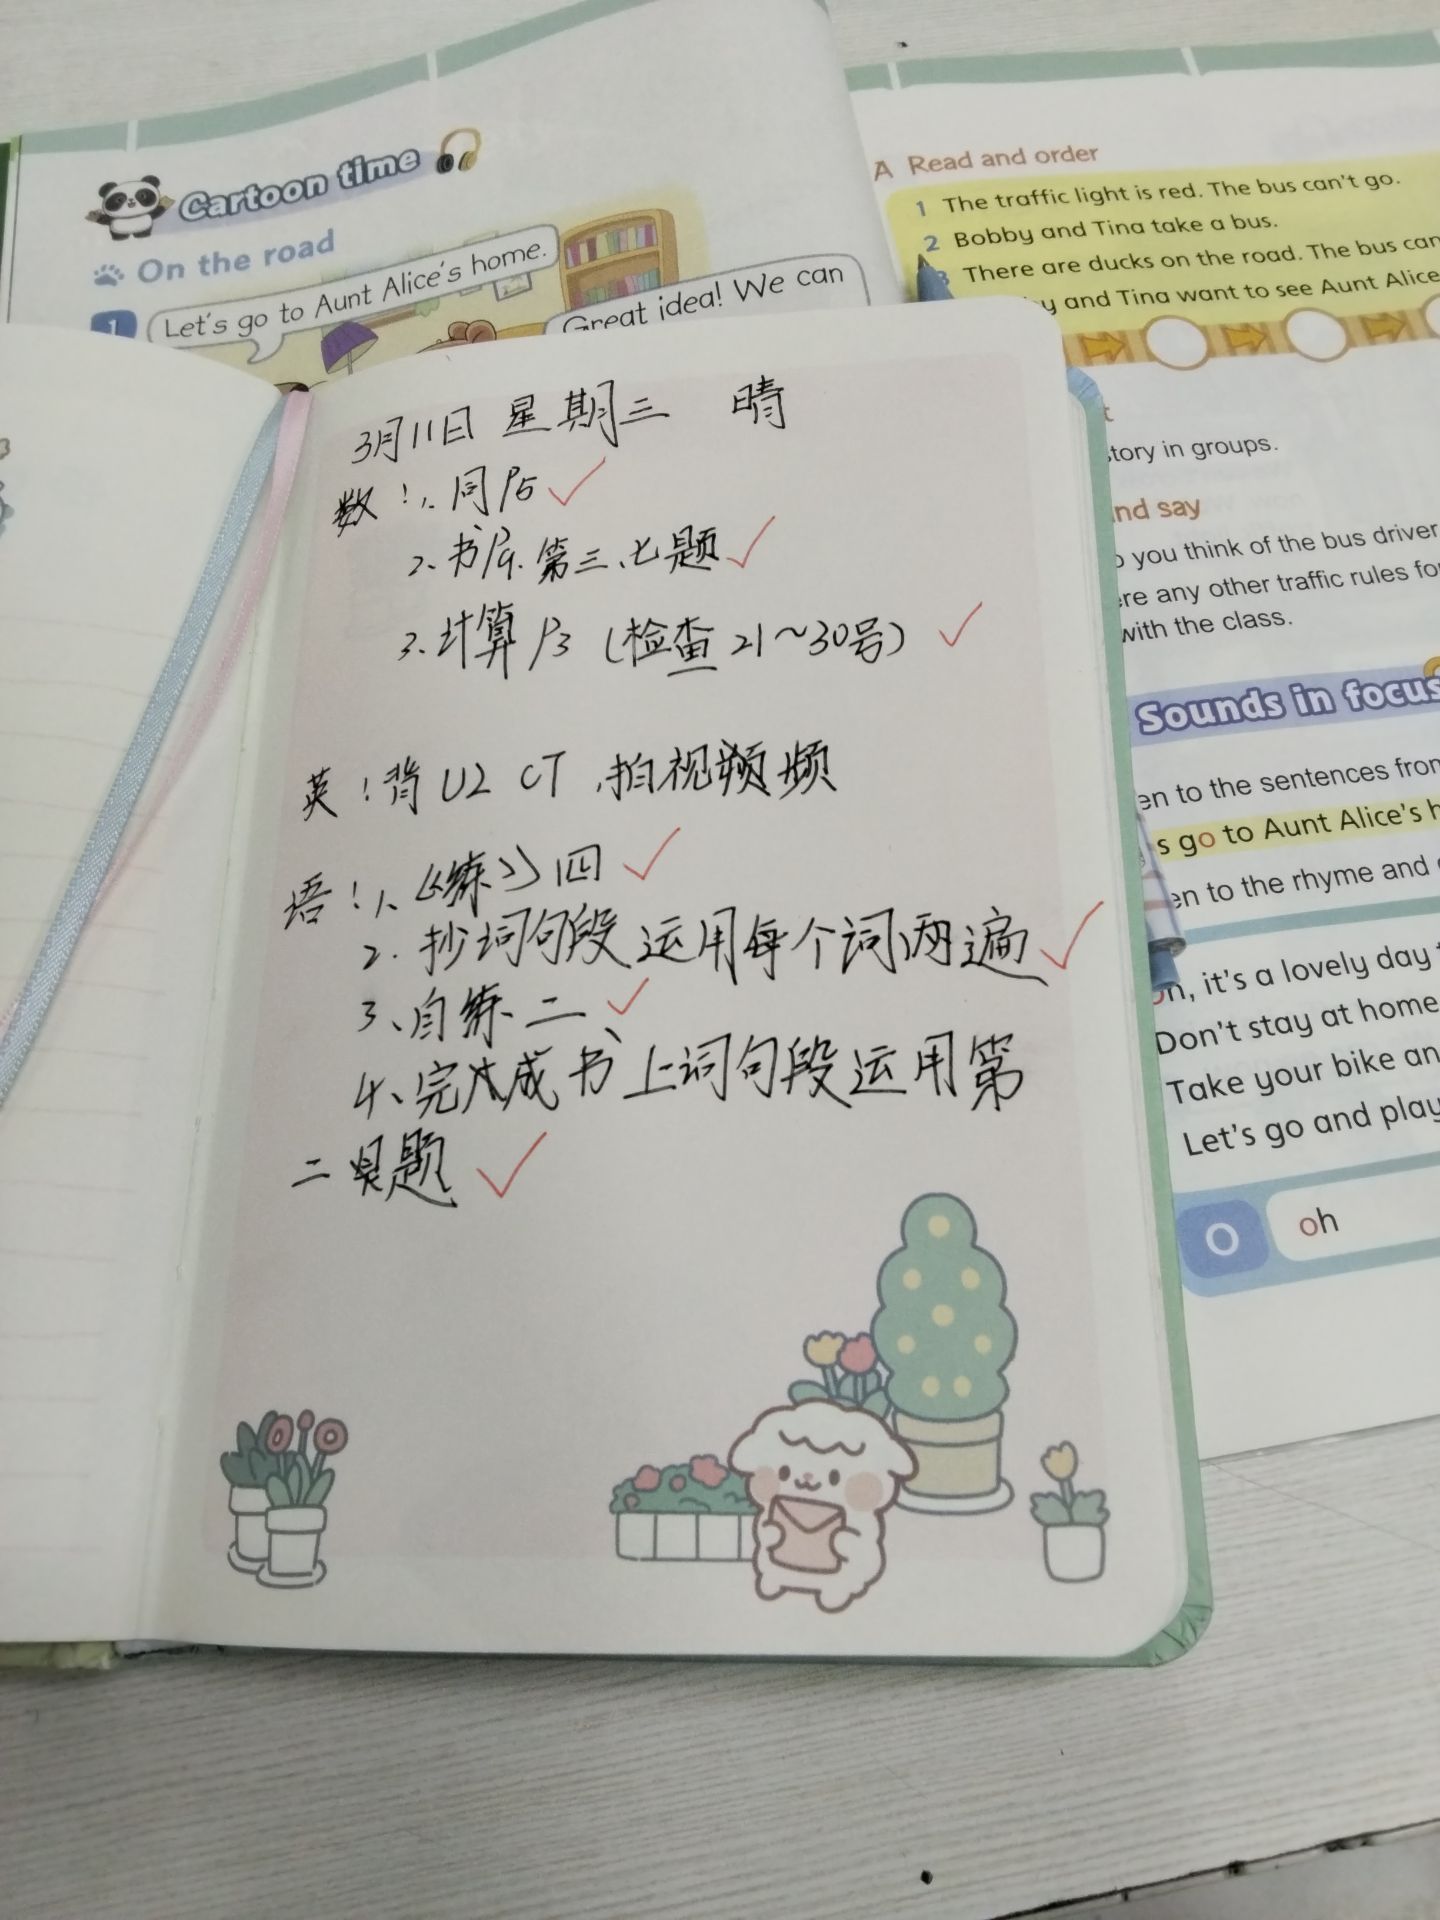 Cartoon time
On the road
1 Let's go to Aunt Alice's home.
Great idea! We can
A Read and order
1 The traffic light is red. The bus can't go.
2 Bobby and Tina take a bus.
3 There are ducks on the road. The bus can
y and Tina want to see Aunt Alice
3月11日 星期三 晴
数:1、同P5
2、书P9、第三、七题
3、计算P3 (检查21~30号)
英:背U2 CT,拍视频
语:1、《练》四
2. 抄词句段运用每个词两遍
3、自练二
4、完成书上词句段运用第
二题
t
tory in groups.
nd say
you think of the bus driver
re any other traffic rules fo
with the class.
Sounds in focus
en to the sentences from
s go to Aunt Alice's h
en to the rhyme and
oh, it's a lovely day
Don't stay at home
Take your bike an
Let's go and play
O oh